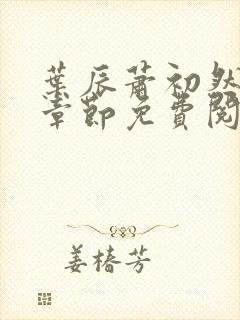 葉辰蕭初然
章節免費閱
姜椿芳